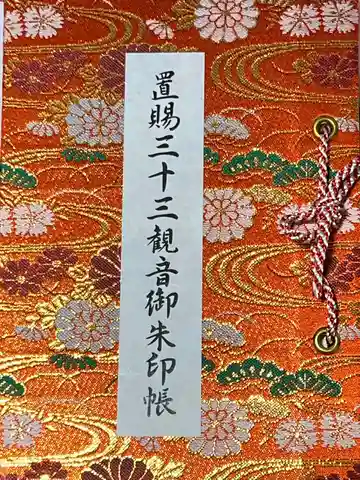 置賜三十三観音御朱印帳